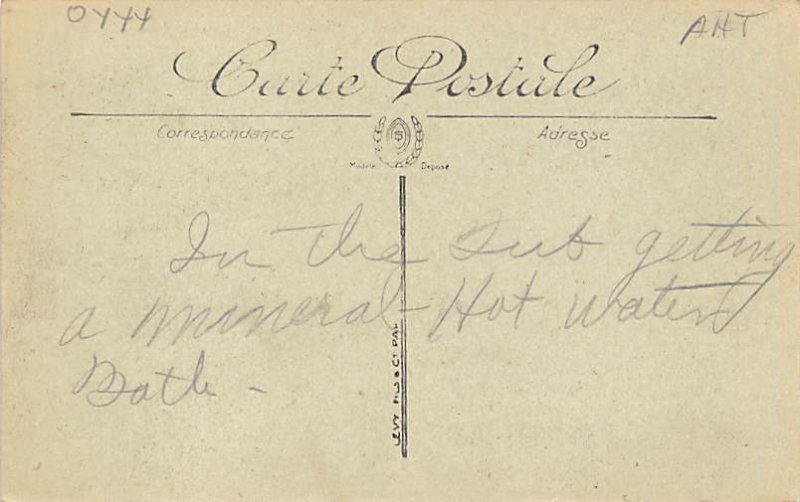 OYYY
AHT
Carte Postale
Correspondance
Adresse
Modèle Déposé
In the Tub getting
a mineral Hot water
Bath -
LEVY FILS & Cie PAR